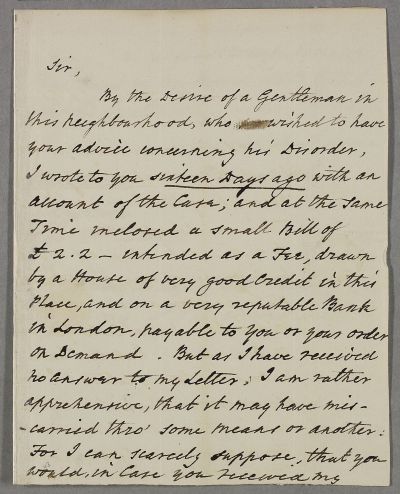 Sir,
By the Desire of a Gentleman in
this neighbourhood, who wished to have
your advice concerning his Disorder,
I wrote to you sixteen Days ago with an
account of the Case; and at the same
Time inclosed a small Bill of
£2.2 – intended as a Fee, drawn
by a House of very good Credit in this
Place, and on a very reputable Bank
in London, payable to you or your order
on Demand. But as I have received
no answer to my Letter, I am rather
apprehensive, that it may have mis-
-carried thro' some means or another:
For I can scarcely suppose, that you
would, in Case you received my